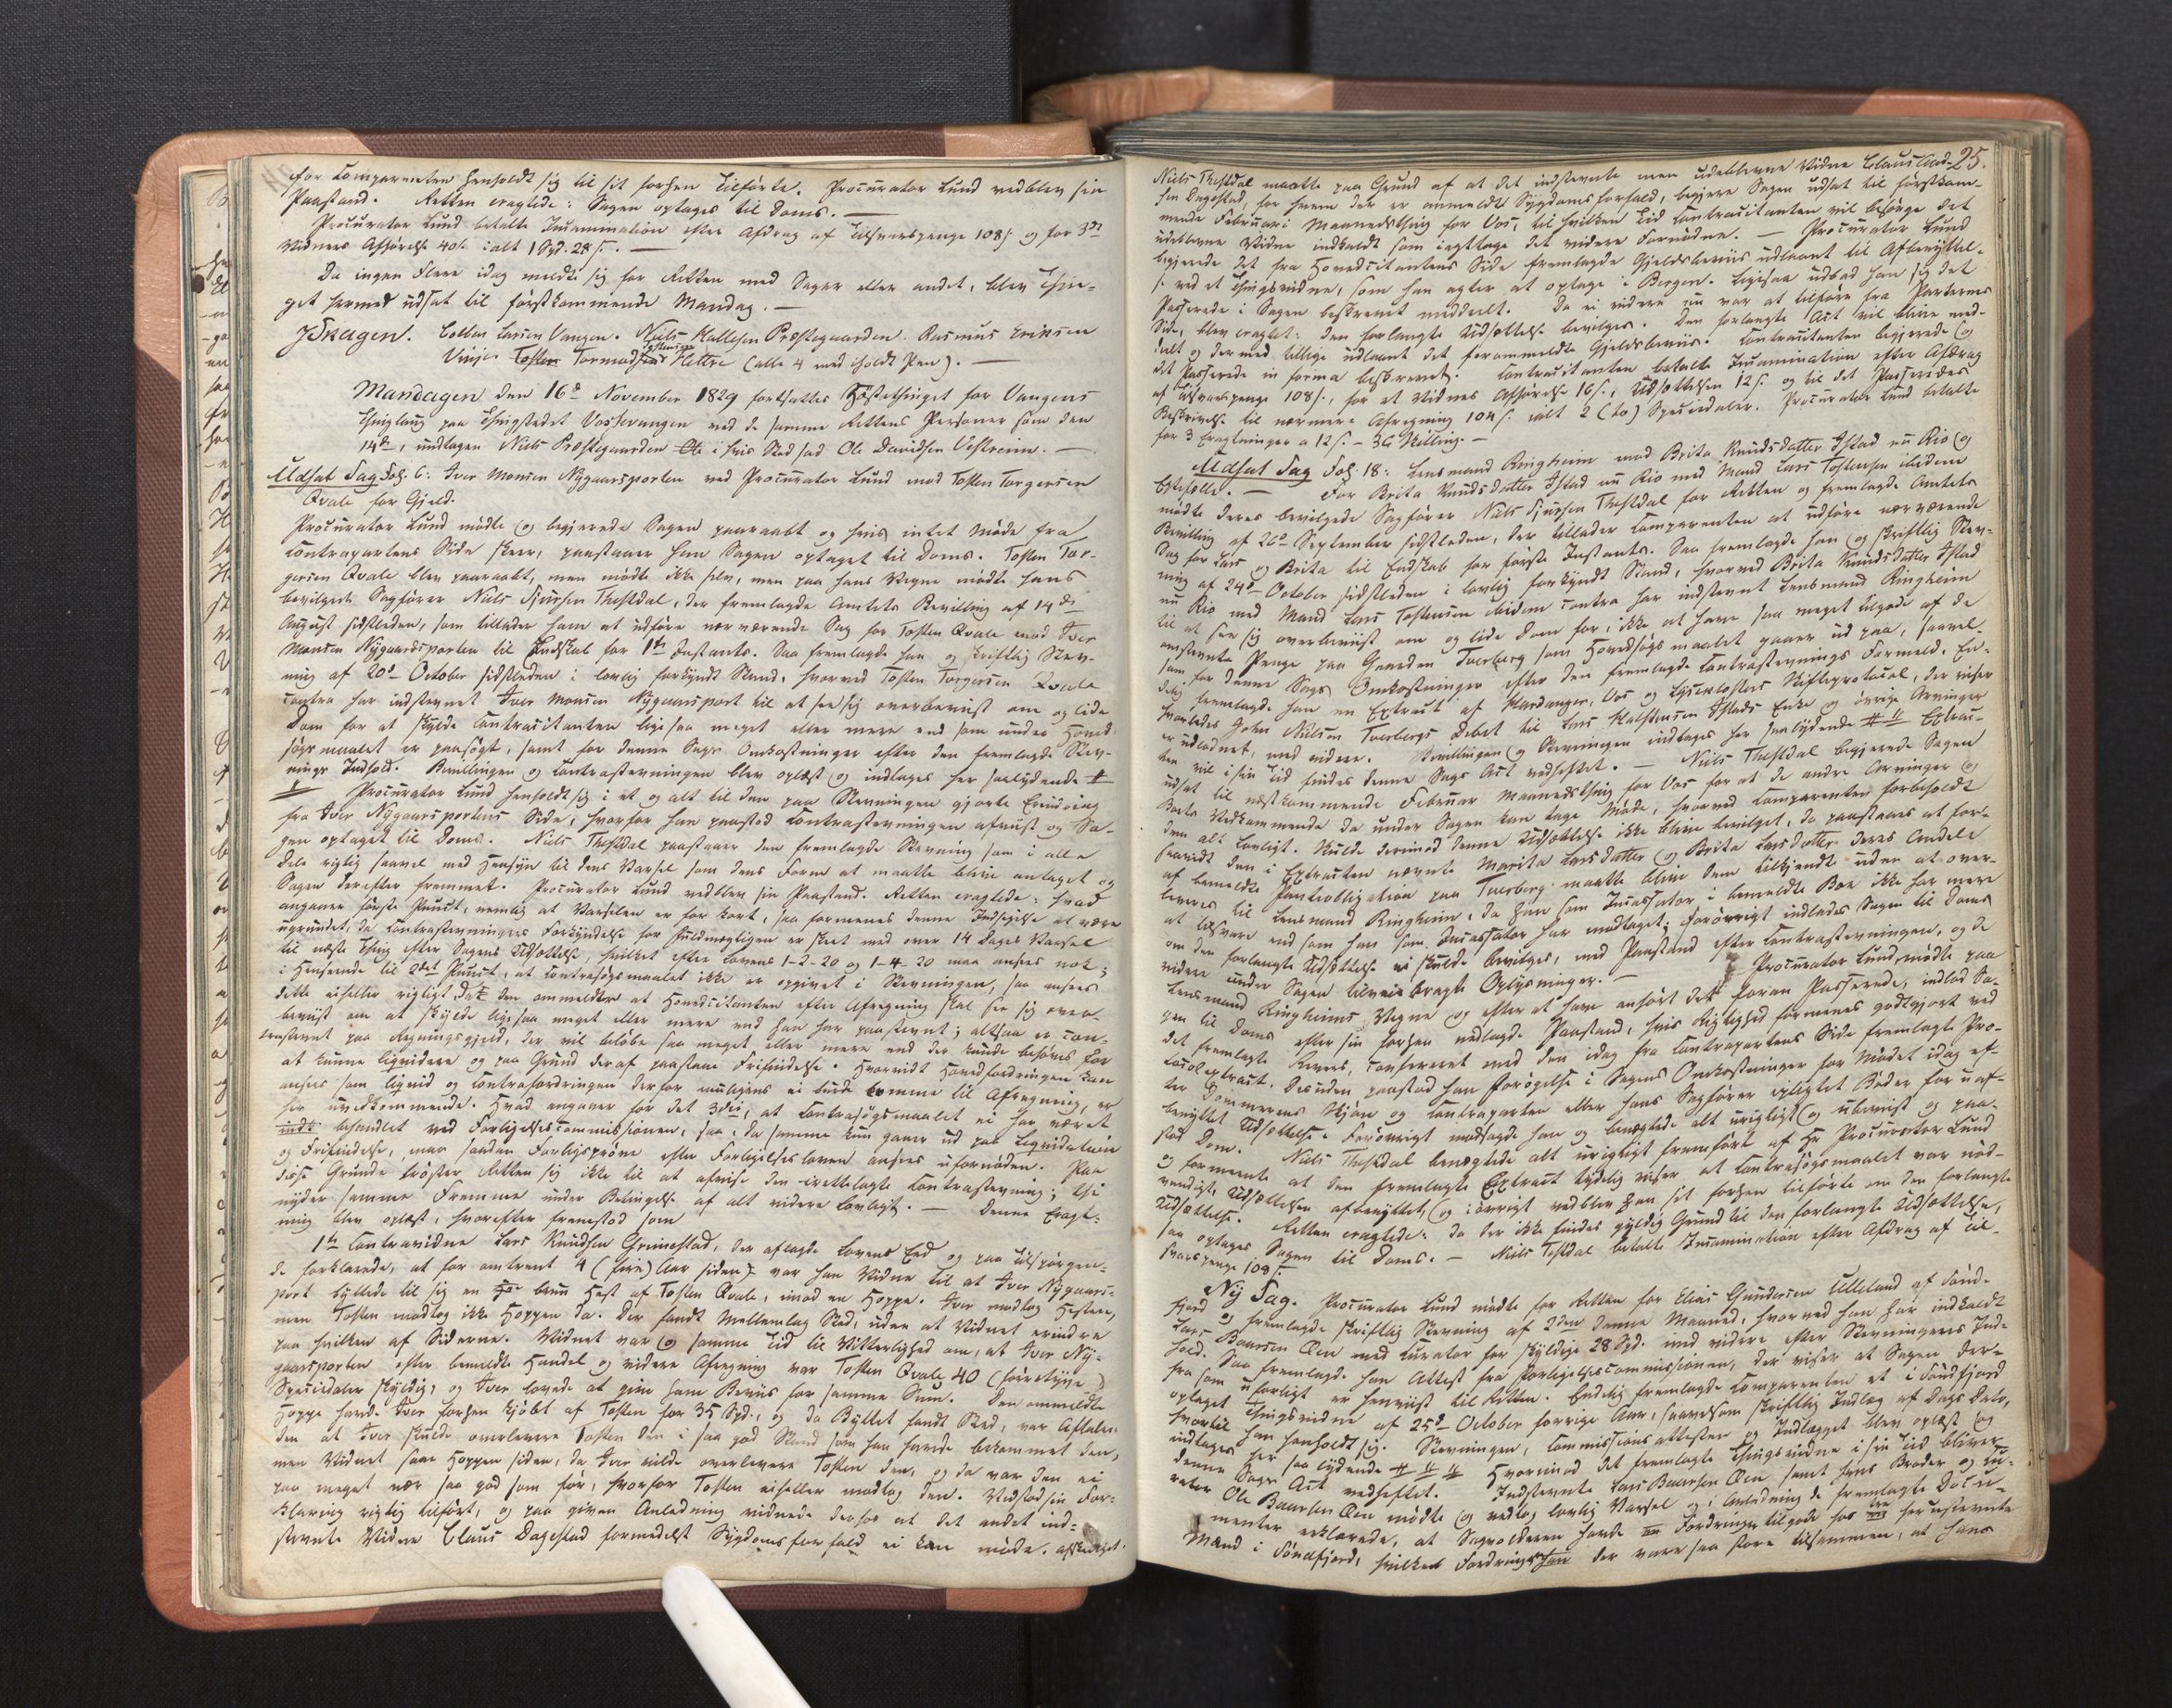 for Comparenten henholdt sig til sit forhen tilførte. Procurator Lund vedblev sin
Paastand. Retten eragtede: Sagen optages til Doms. —
Procurator Lund betalte Incammination efter Afdrag af Tilsvarspenge 108 s. og for 3de
Vidners Afhørelse 40 s. ialt 1 Spd. 28 s. —
Da ingen Flere idag meldte sig for Retten med Sager eller andet, blev Thin-
get hermed udsat til førstkommende Mandag. —
JSkagen. Colben Larsen Vangen. Niels Kallesen Præstegaarden. Rasmus Eriksen
Vinje. Tosten Tormod Flettre (alle 4 med iholdt Pen). —
Mandagen den 16de November 1829 fortsattes Høstethinget for Vangens
Thinglaug paa Thingstedet Vossevangen med de samme Rettens Personer som den
14de, undtagen Niels Præstegaarden i hvis Sted sad Ole Davidsen Uhlreim. —
Udsat Sag Fol. 6: Iver Monsen Nygaarsporten ved Procurator Lund mod Tosten Torgersen
Qvale for Gjeld.
Procurator Lund mødte og begjerede Sagen paaraabt og hvis intet Møde fra
Contrapartens Side skeer, paastaaer han Sagen optaget til Doms. Tosten Tor-
gersen Qvale blev paaraabt, men mødte ikke selv, men paa hans Vegne mødte hans
bevilgede Sagfører Niels Sjursen Thestdal, der fremlagde Amtets Bevilling af 14de
August sidstleden, som tillader ham at udføre nærværende Sag for Tosten Qvale mod Iver
Monsen Nygaardsporten til Endskab for 1ste Instants. Saa fremlagde han og skriftlig Stev-
ning af 20de October sidstleden i lovlig forkyndt Stand, hvorved Tosten Torgersen Qvale
contra har indstevnet Iver Monsen Nygaarsport til at see sig overbeviist om og lide
Dom for at skylde Contracitanten ligesaa meget eller mere end som under Hoved-
søgsmaalet er paasøgt, samt for denne Sags Omkostninger efter den fremlagde Stev-
nings Indhold. Bevillingen og Contrastevningen blev oplæst og indtages her saalydende #
Procurator Lund henholdt sig i et og alt til den paa Stevningen gjorte Erindring
fra Iver Nygaarsportens Side, hvorfor han paastod Contrastevningen afviist og Sa-
gen optaget til Doms. Niels Thestdal paastaaer den fremlagde Stevning som i alle
Dele rigtig saavel med Hensyn til dens Varsel som dens Form at maatte blive antaget og
Sagen derefter fremmet. Procurator Lund vedblev sin Paastand. Retten eragtede: hvad
angaaer første Punct, nemlig at Varselen er for kort, saa formenes denne Indsigelse at være
ugrundet, da Contrastevningens Forkyndelse for Fuldmægtigen er skeet med over 14 Dages Varsel
til næste Thing efter Sagens Udsættelse, hvilket efter Lovens 1-2-20 og 1-4-20 maa ansees nok;
i Henseende til 2det Punct, at Contrasøgsmaalet ikke er opgivet i Stevningen, saa ansees
dette eiheller rigtigt, da den ommelder at Hovedcitanten efter Afregning skal see sig over-
beviist om at skylde ligesaa meget eller mere end han har paastevnt; altsaa er Con-
trastevnt paa Regningsgjeld, der vil beløbe saa meget eller mere end der kunde behøves for
at kunne liqvidere og paa Grund deraf paastaae Frifindelse. Hvorvidt Hovedfordringen kan
ansees som liqvid og Contrafordringen derfor muligens ei bude komme til Afregning, er
her uvedkommende. Hvad angaaer for det 3die, at Contrasøgsmaalet ei har været
behandlet ved Forligelsescommissionen, saa, da samme kun gaaer ud paa Liqvidation
og Frifindelse, maa saadan Forligsprøve efter Forligelsesloven ansees ufornøden. Paa
disse Grunde trøster Retten sig ikke til at afvise den irettelagte Contrastevning; thi
nyder samme Fremme under Betingelse af alt videre Lovligt. — Denne Eragt-
ning blev oplæst, hvorefter fremstod som
1ste Contravidne Lars Knudsen Grimestad, der aflagde Lovens Eed og paa Tilspørgen-
de forklarede, at for omtrent 4 (fire) Aar siden var han Vidne til at Iver Nygaars-
port byttede til sig en brun Hest af Tosten Qvale, imod en Hoppe. Iver modtog Hesten,
men Tosten modtog ikke Hoppen da. Der fandt Mellemlag Sted, uden at Vidnet erindre
paa hvilken af Siderne. Vidnet var og samme Tid til Vitterlighed om, at Iver Ny-
gaarsporten efter bemeldte Handel og videre Afregning var Tosten Qvale 40 (førretyve)
Speciedaler skyldig, og Iver lovede at give ham Beviis for samme Sum. Den ommeldte
Hoppe havde Iver forhen kjøbt af Tosten for 35 Spd., og da Byttet fandt Sted, var Aftalen
den at Iver skulde overlevere Tosten den i saa god Stand som han havde bekommet den,
men Vidnet saae Hoppen siden, da Iver vilde overlevere Tosten den, og da var den ei
paa meget nær saa god som før, hvorfor Tosten eiheller modtog den. Vedstod sin For-
klaring rigtig tilført, og paa given Anledning vidnede derhos at det andet ind-
stevnte Vidne Claus Dagestad formedelst Sygdomsforfald ei kan møde. Afskediget.
25.
Niels Thestdal maatte paa Grund af at det indstevnte men udeblevne Vidne Claus And-
sen Dagestad, for hvem der er anmeldt Sygdomsforfald, begjere Sagen udsat til førstkom-
mende Februari Maanedsthing for Vos, til hvilken Tid Contracitanten vil besørge det
udeblevne Vidne indkaldt som iagttage det videre Fornødne. — Procurator Lund
begjerede det fra Hovedcitantens Side fremlagde Gjeldsbeviis udlaant til Afbenyttel-
se ved et Thingsvidne, som han agter at optage i Bergen. Ligesaa udbad han sig det
Passerede i Sagen beskrevet meddeelt. Da ei videre nu var at tilføre fra Parternes
Side, blev eragtet: Den forlangte Udsættelse bevilges. Den forlangte Act vil blive med-
deelt og dermed tillige udlaant det forommeldte Gjeldsbeviis. Contracitanten begjerede og
det Passerede in forma beskrevet. Contracitanten betalte Incammination efter Afdrag
af Tilsvarspenge 108 s., for et Vidnes Afhørelse 16 s., Udsættelsen 12 s. og til det Passeredes
Beskrivelse til nærmere Afregning 104 s. ialt 2 (to) Speciedaler. Procurator Lund betalte
for 3 Eragtninger a 12 s. — 36 Skilling. —
Udsat Sag Fol. 18: Lensmand Ringheim mod Brita Knudsdatter Istad nu Rio og
. — For Brita Knudsdatter Istad nu Rio med Mand Lars Tostensen ibidem
mødte deres bevilgede Sagfører Niels Sjursen Thestdal for Retten og fremlagde Amtets
Bevilling af 26de September sidstleden, der tillader Comparenten at udføre nærværende
Sag for Lars og Brita til Endskab for første Instants. Saa fremlagde han og skriftlig Stev-
ning af 24de October sidstleden i lovlig forkyndt Stand, hvorved Brita Knudsdatter Istad
nu Rio med Mand Lars Tostensen ibidem contra har indstevnt Lensmand Ringheim
til at see sig overbeviist om og lide Dom for, ikke at have saa meget tilgode af de
omstevnte Penge paa Gaarden Tverberg som Hovedsøgsmaalet gaaer ud paa, saavel-
som for denne Sags Omkostninger efter den fremlagde Contrastevnings Formeld. En-
delig fremlagde han en Extract af Hardanger, Vos og Lyseclosters Skifteprotocol, der viser
hvorledes John Nielsen Tverbergs Debet til Lars Halstensen Istads Enke og øvrige Arvinger
er udlodnet, med videre. Bevillingen og Stevningen indtages her saalydende # # Extrac-
ten vil i sin Tid findes denne Sags Act vedheftet. — Niels Thestdal begjerede Sagen
udsat til næstkommende Februar Maanedsthing for Vos for at de andre Arvinger og
Boets Vedkommende da under Sagen kan tage Møde, hvorved Comparenten forbeholdt
dem alt Lovligt. Skulde derimod denne Udsættelse ikke blive bevilget, da paastaaes at for-
saavidt den i Extracten nævnte Marita Larsdatter og Brita Larsdatter deres Andele
af bemeldte Pantobligation paa Tverberg maatte blive dem tilkjendt uden at over-
leveres til Lensmand Ringheim, da han som Incassator i bemeldte Boe ikke har mere
at tilsvare end som han som Incassator har modtaget; forøvrigt indlades Sagen til Doms
om den forlangte Udsættelse ei skulde bevilges, med Paastand efter Contrastevningen, og de
videre under Sagen tilveiebragte Oplysninger. — Procurator Lund mødte paa
Lensmand Ringheims Vegne og efter at have anført det foran Passerede, indlod Sa-
gen til Doms efter sin forhen nedlagde Paastand, hvis Rigtighed formenes godtgjort ved
det fremlagte Revers, confereret med den idag fra Contrapartens Side fremlagte Pro-
tocolextract. Desuden paastod han Forøgelse i Sagens Omkostninger for Mødet idag ef-
ter Dommerens Skjøn og Contraparten eller hans Sagfører ipligtet Bøder for uaf-
benyttet Udsættelse. Forøvrigt modsagde han og benægtede alt urigtigt og ubeviist og paa-
stod Dom. Niels Thestdal benægtede alt urigtigt fremført af Hr. Procurator Lund
og formeente at den fremlagte Extract tydelig viser at Contrasøgsmaalet var nød-
vendigt, Udsættelsen afbenyttet, og iøvrigt vedblev han sit forhen tilførte om den forlangte
Udsættelse. Retten eragtede: da der ikke findes gyldig Grund til den forlangte Udsættelse,
saa optages Sagen til Doms. — Niels Testdal betalte Incammination efter Afdrag af Til-
svarspenge 108 s.
Ny Sag. Procurator Lund mødte for Retten for Elias Gundersen Ulleland af Sønd-
fjord og fremlagde skriftlig Stevning af 2den denne Maaned, hvorved han har indkaldt
Lars Baarsen Øen med Curator for skyldige 28 Spd. med videre efter Stevningens Ind-
hold. Saa fremlagde han Attest fra Forligelsescommissionen, der viser at Sagen der-
fra som uforligt er henviist til Retten. Endelig fremlagde Comparenten et i Søndfjord
optaget Thingsvidne af 25de October forrige Aar, saavelsom skriftlig Indlæg af Dags Dato,
hvortil han henholdt sig. Stevningen, Commissionsattesten og Indlægget blev oplæst og
indtages her saalydende # # # Hvorimod det fremlagte Thingsvidne i sin Tid bliver
denne Sags Act vedheftet. Indstevnte Lars Baarsen Øen samt hans Broder og Cu-
rator Ole Baarsen Øen mødte og vedtog lovlig Varsel og i Anledning de fremlagte Docu-
menter erklærede, at Sagvolderen havde Fordringer tilgode hos tre herunstevnte
Mænd i Søndfjord, hvilken Fordring der vare saa store tilsammen, at hans